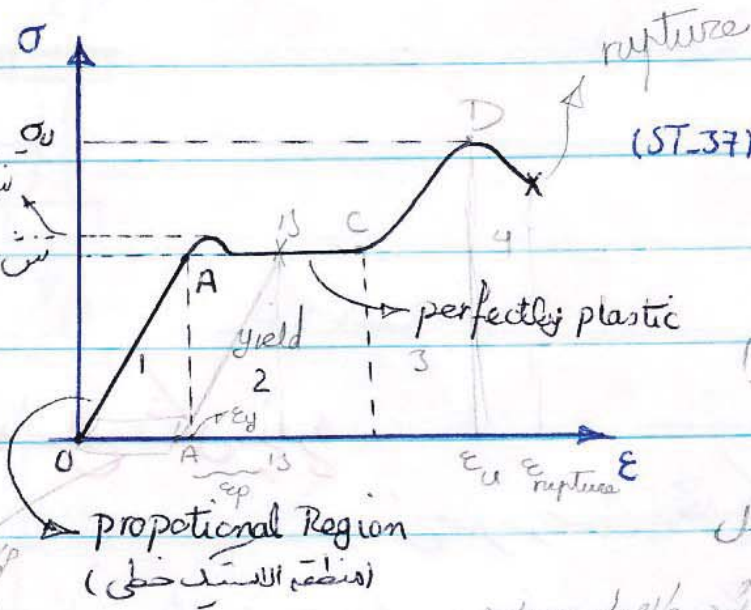 σ
rupture
σu
D
(ST_37)
B
C
A
4
perfectly plastic
yield
1
2
3
εy
O
A
B
εp
εu
ε rupture
ε
propotional Region
(منطقه الاستیک خطی)